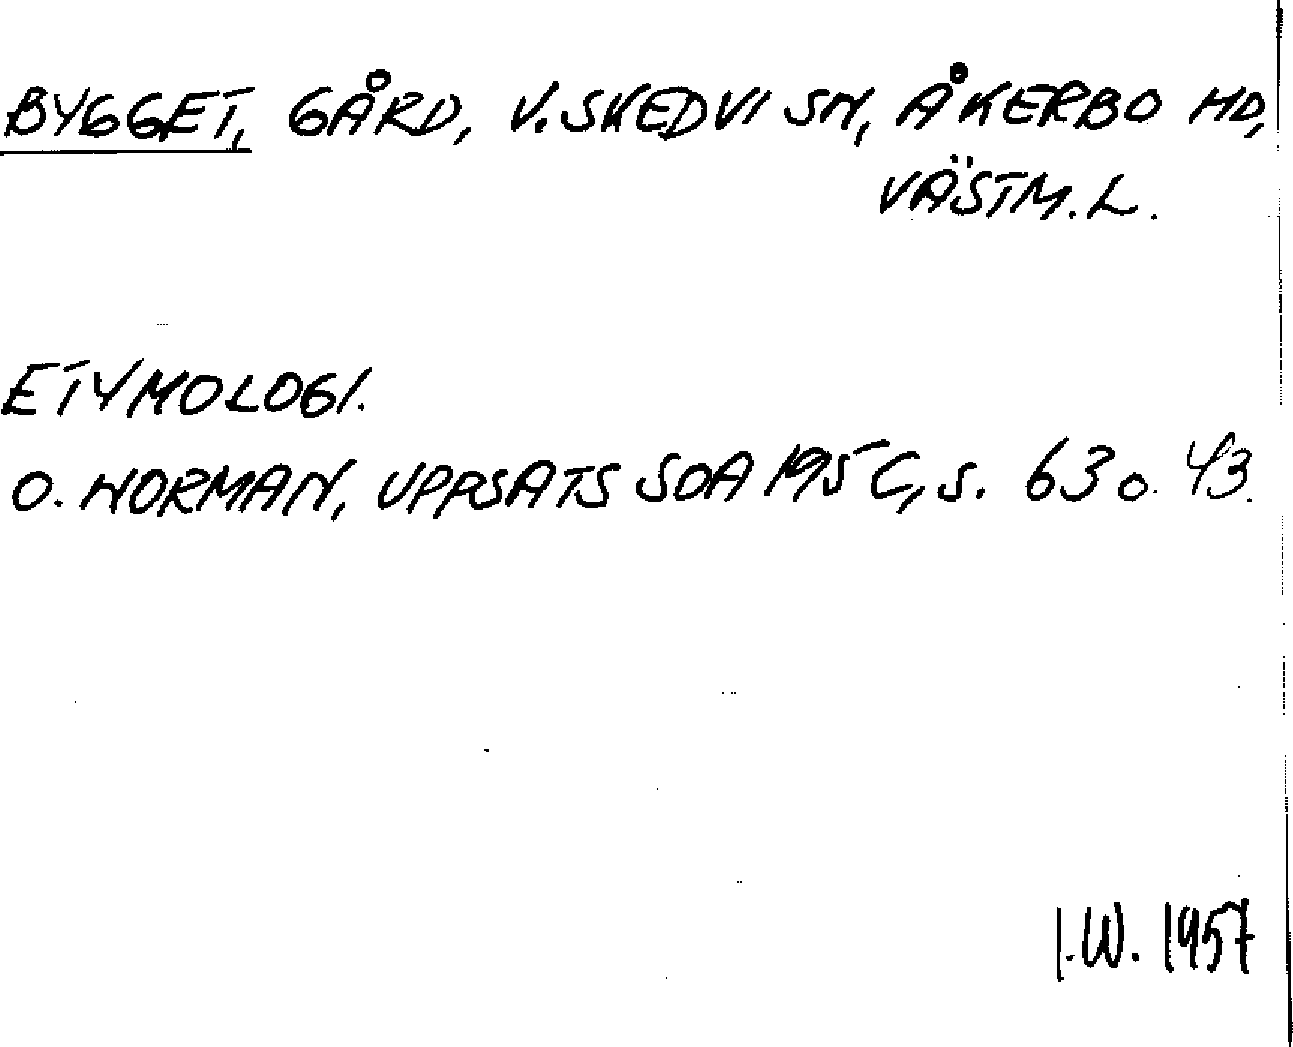 BYGGET, GÅRD, V. SKEDVI SN, ÅKERBO HD,
VÄSTM. L.
ETYMOLOGI.
O. NORMAN, UPPSATS SOA 195C, s. 63 o. 43.
I.W. 1957